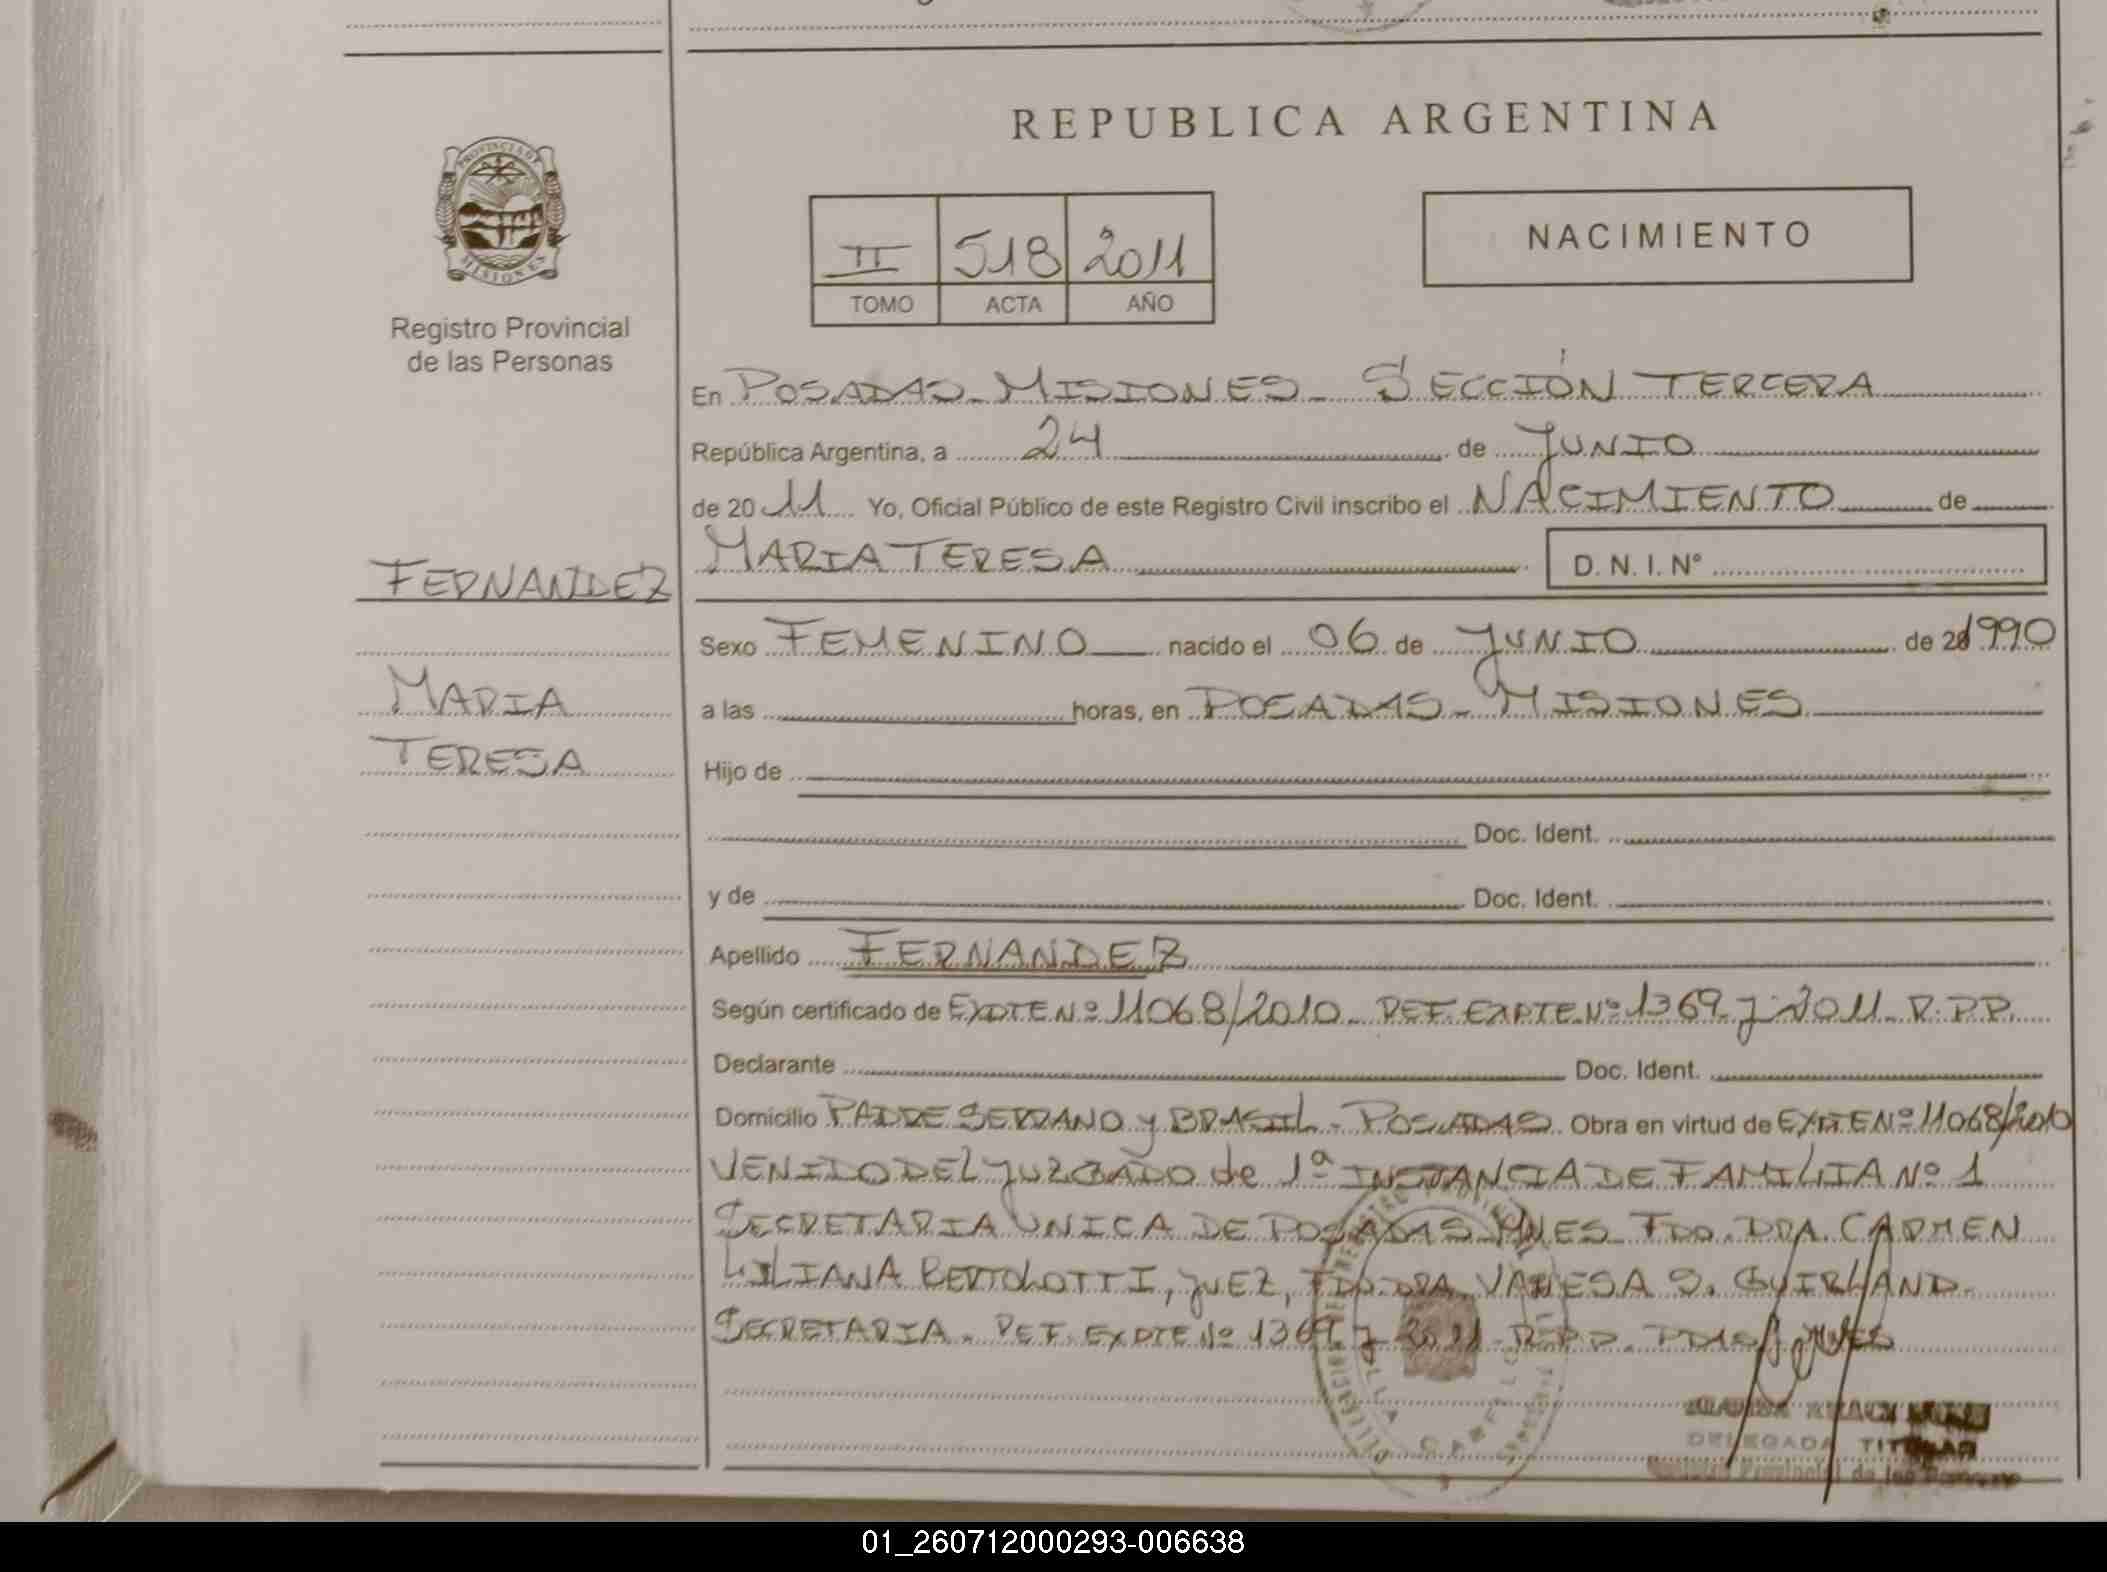 REPUBLICA ARGENTINA
PROVINCIA DE
MISIONES
Registro Provincial
de las Personas
II 518 2011
TOMO ACTA AÑO
NACIMIENTO
En POSADAS - MISIONES - SECCIÓN TERCERA
República Argentina, a 24 de JUNIO
de 2011 Yo, Oficial Público de este Registro Civil inscribo el NACIMIENTO de
MARIA TERESA D. N. I. Nº
FERNANDEZ
MARIA
TERESA
Sexo FEMENINO nacido el 06 de JUNIO de 20 1990
a las horas, en POSADAS - MISIONES
Hijo de
Doc. Ident.
y de Doc. Ident.
Apellido FERNANDEZ
Según certificado de EXPTE Nº 11068/2010 - REF. EXPTE. Nº 1369-J-2011- R.P.P.
Declarante Doc. Ident.
Domicilio PADRE SERRANO y BRASIL - POSADAS Obra en virtud de EXPTE Nº 11068/2010
VENIDO DEL JUZGADO de 1ª INSTANCIA DE FAMILIA Nº 1
SECRETARIA UNICA DE POSADAS MNES FDO. DRA. CARMEN
LILIANA BERTOLOTTI, JUEZ, FDO. DRA. VANESA S. GUIRLAND.
SECRETARIA. REF. EXPTE Nº 1369-J-2011 R.P.P.
DELEGADA TITULAR
Registro Provincial de las Personas
01_260712000293-006638